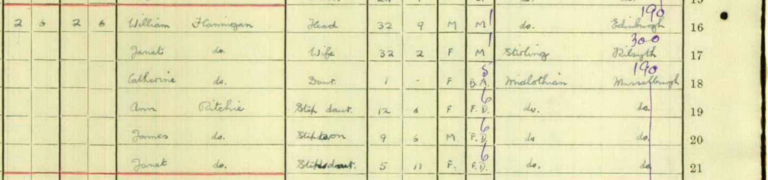 2 6 2 6 William Flannigan Head 32 9 M M 1 do. Edinburgh 190 16
Janet do. Wife 32 2 F M 1 Stirling Kilsyth 300 17
Catherine do. Daur. 1 - F B.A. 5 Midlothian Musselburgh 190 18
Ann Ritchie Step daur. 12 F F.D. 6 do. do. 19
James do. Step son 9 6 M F.D. 6 do do 20
Janet do. Step daur. 5 11 F. F.D. 6 do. do. 21